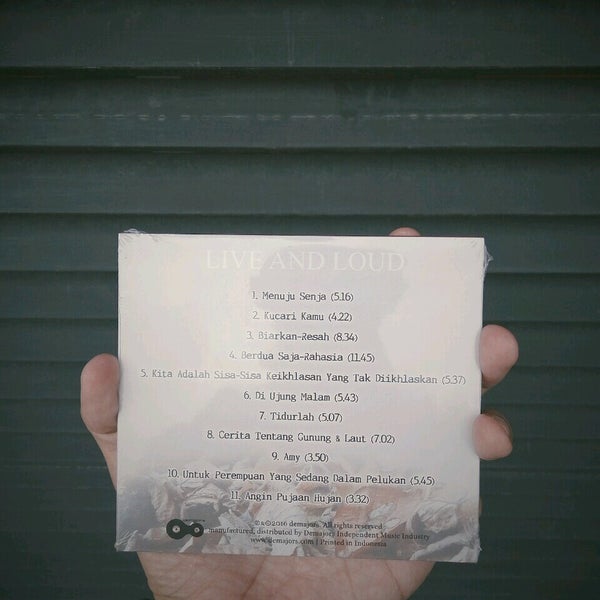 LIVE AND LOUD
1. Menuju Senja (5.16)
2. Kucari Kamu (4.22)
3. Biarkan-Resah (8.34)
4. Berdua Saja-Rahasia (11.45)
5. Kita Adalah Sisa-Sisa Keikhlasan Yang Tak Diikhlaskan (5.37)
6. Di Ujung Malam (5.43)
7. Tidurlah (5.07)
8. Cerita Tentang Gunung & Laut (7.02)
9. Amy (3.50)
10. Untuk Perempuan Yang Sedang Dalam Pelukan (5.45)
11. Angin Pujaan Hujan (3.32)
℗&©2016 demajors. All rights reserved
manufactured, distributed by Demajors Independent Music Industry
www.demajors.com | Printed in Indonesia